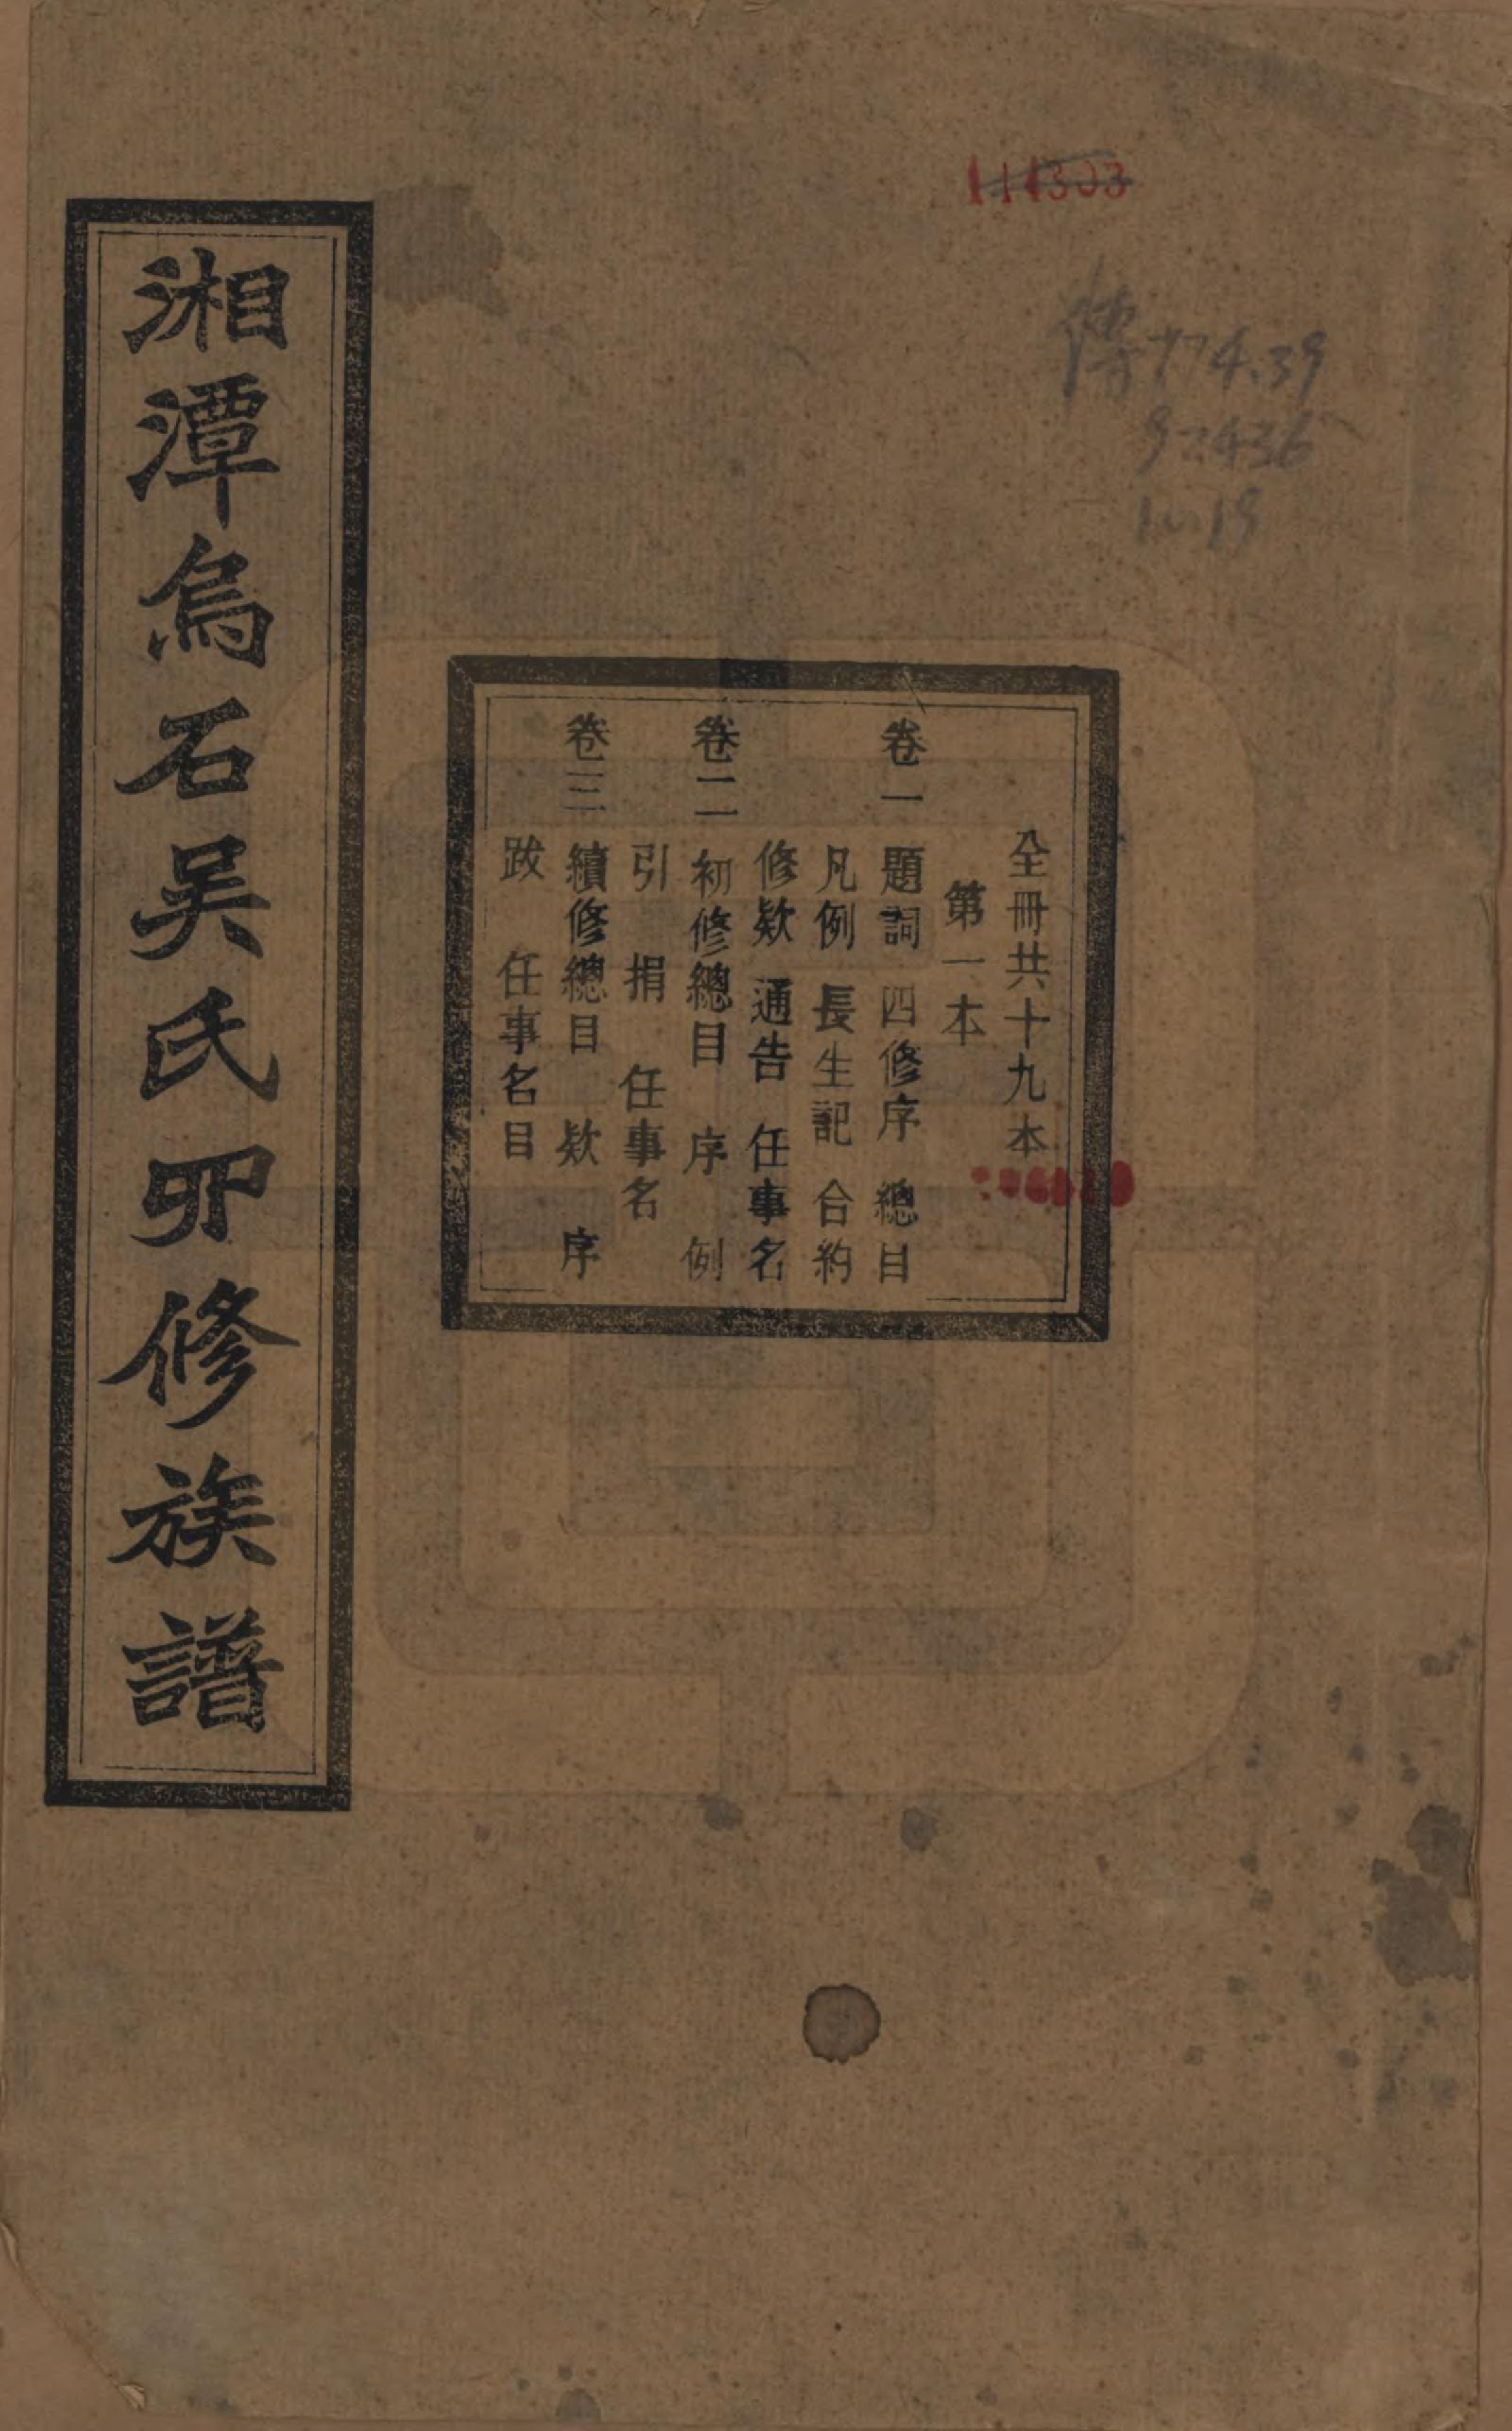 全冊共十九本
第一本
卷一 題詞 四修序 總目
凡例 長生記 合約
修欵 通告 任事名
卷二 初修總目 序 例
引 捐 任事名
卷三 續修總目 欵 序
跋 任事名目
湘潭烏石吳氏四修族譜